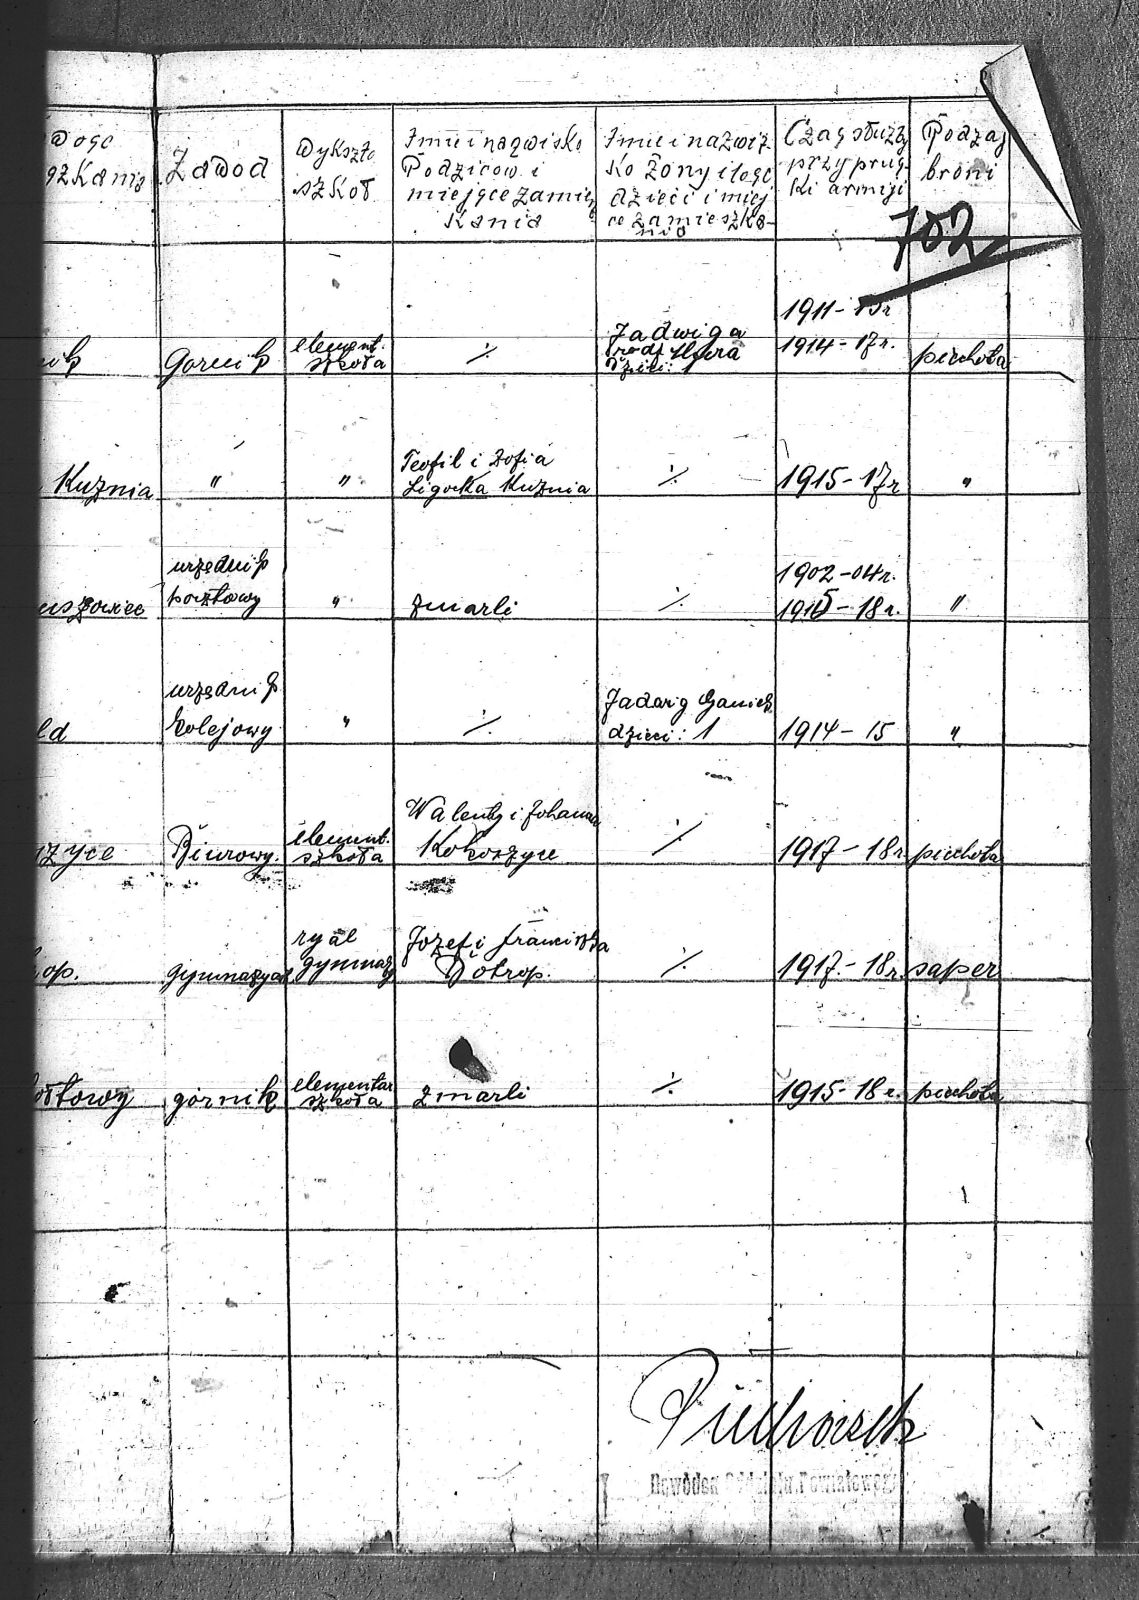 Zawod
Wykszto
szkoł
Imie i nazwisko
Rodzicow i
miejsce zamiesz
kania
Imie i nazwiz
ko żony ilosc
dzieci i miej
ce zamieszka-
nia
Czas służby
przy prus
ki armiji
Rodzaj
broni
702
Gornik
element.
szkoła
%
Jadwiga
dzieci: 1
1911-13r
1914-17r.
piechota
Kuznia
"
"
Teofil i Zofia
Ligocka Kuznia
%
1915-17r
"
urzednik
pocztowy
"
zmarli
%
1902-04r.
1915-18r.
"
ld
urzednik
kolejowy
"
%
dzieci: 1
1914-15
"
szyce
Biurowy.
element.
szkoła
Walenty i Johanna
Kokoszyce
%
1917-18r
piechota
op.
gymnazyast
ryal
gymnazy
Jozef i Franciszka
Biotrop.
%
1917.-18r.
saper
ottowy
górnik
elementar
szkoła
zmarli
%
1915-18r.
piechota
Dowódca Oddziału Powiatowego